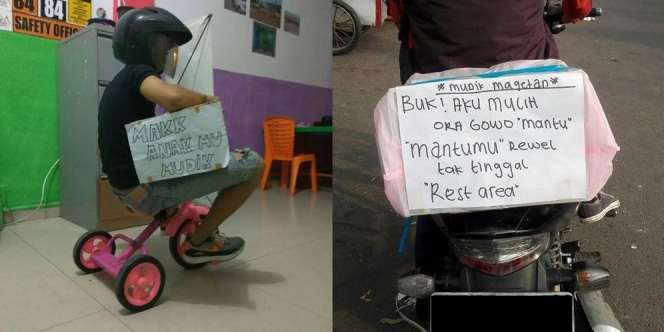 84 84
SAFETY OFFICE
MAKK
ANAK MU
MUDIK
* mudik magetan *
BUK! AKU MULIH
ORA GOWO "MANTU"
"MANTUMU" REWEL
tak tinggal
"Rest area"